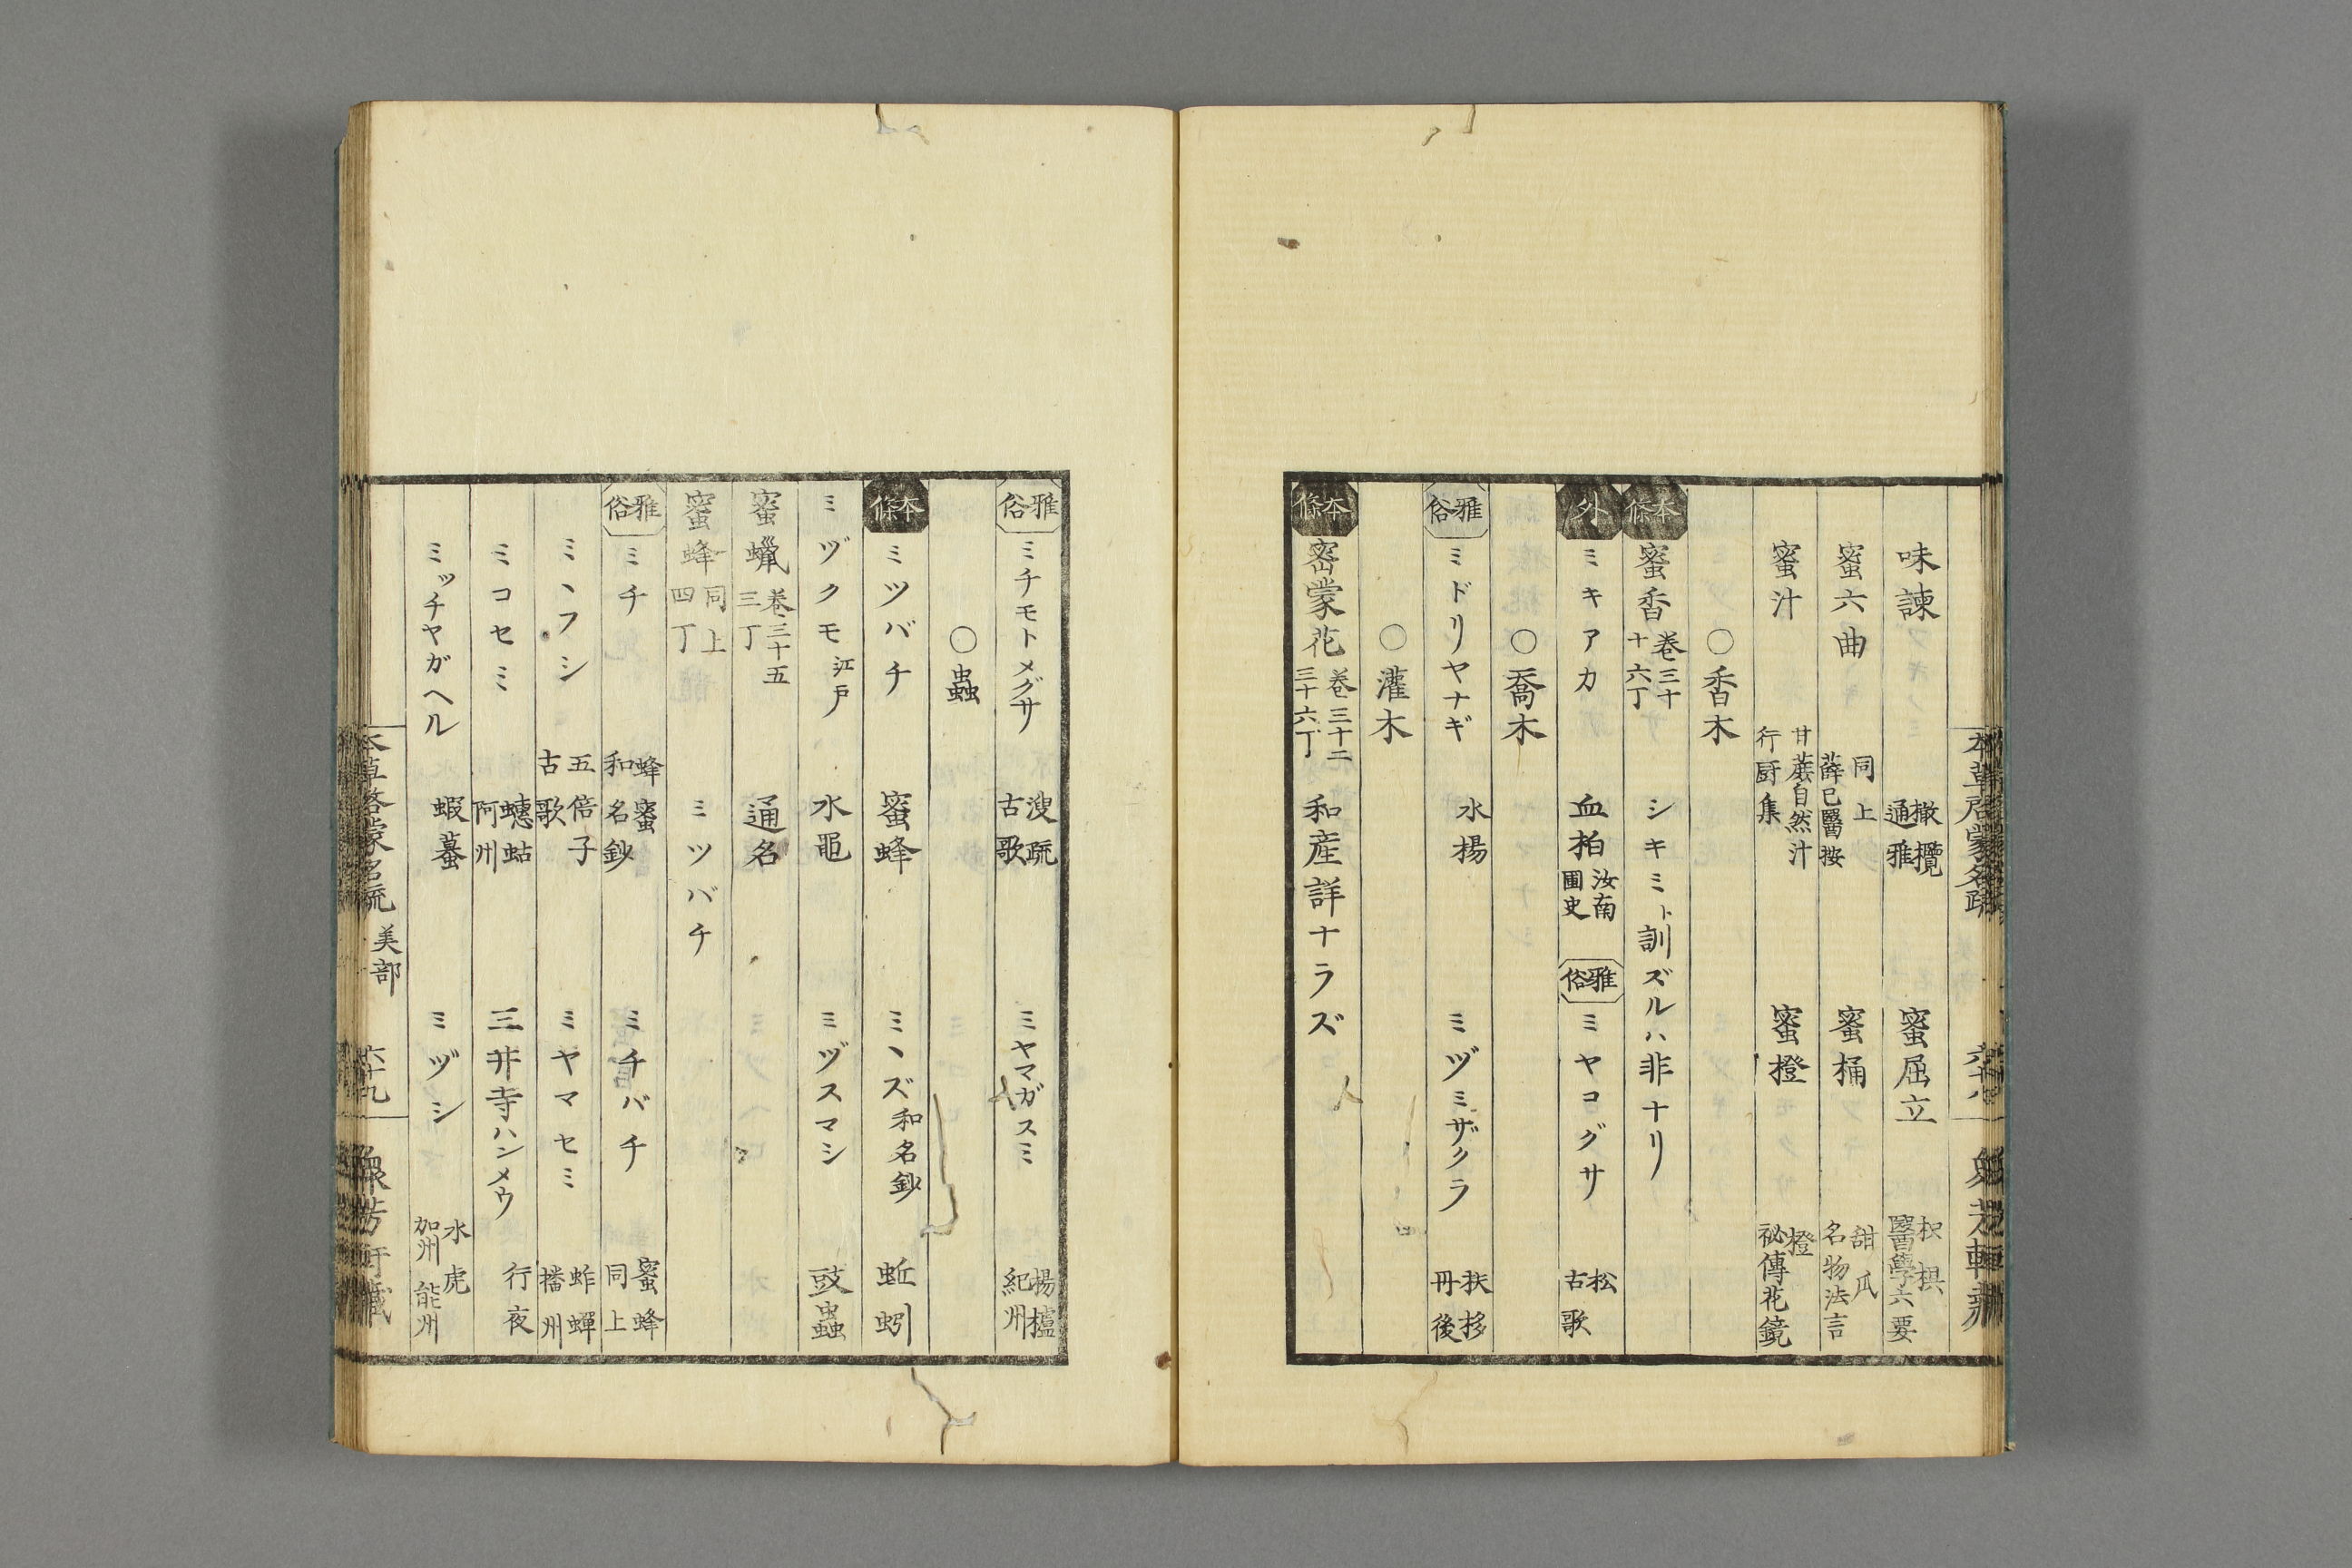 味諫 橄欖 通雅 蜜屈立 枳椇 醫學六要
蜜六曲 同上 薛已醫按 蜜桶 甜瓜 名物法言
蜜汁 甘蔗自然汁 行厨集 蜜橙 橙 祕傳花鏡
○香木
本條 蜜香 卷三十 十六丁 シキミト訓ズルハ非ナリ
外 ミキアカ 血柏 汝南圃史 雅俗 ミヤコグサ 松 古歌
○喬木
雅俗 ミドリヤナギ 水楊 ミヅミザクラ 扶栘 丹後
○灌木
本條 密蒙花 卷三十二 三十六丁 和産詳ナラズ
雅俗 ミチモトメグサ 溲疏 古歌 ミヤマガスミ 楊櫨 紀州
○蟲
本條 ミツバチ 蜜蜂 ミヽズ 和名鈔 蚯蚓
ミヅクモ 江戸 水黽 ミヅスマシ 豉蟲
蜜蠟 卷三十五 三丁 通名
蜜蜂 同上 四丁 ミツバチ
雅俗 ミチ 蜂蜜 和名鈔 ミチバチ 蜜蜂 同上
ミヽフシ 五倍子 古歌 ミヤマセミ 蚱蟬 播州
ミコセミ 蟪蛄 阿州 三井寺ハンメウ 行夜
ミッチヤガヘル 蝦蟇 ミヅシ 水虎 加州 能州
本草啓蒙名疏 美部 六十九